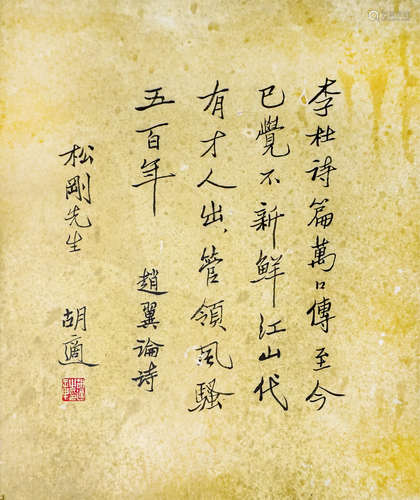 李杜詩篇萬口傳至今
已覺不新鮮江山代
有才人出，管領風騷
五百年　趙翼論詩
松剛先生　胡適